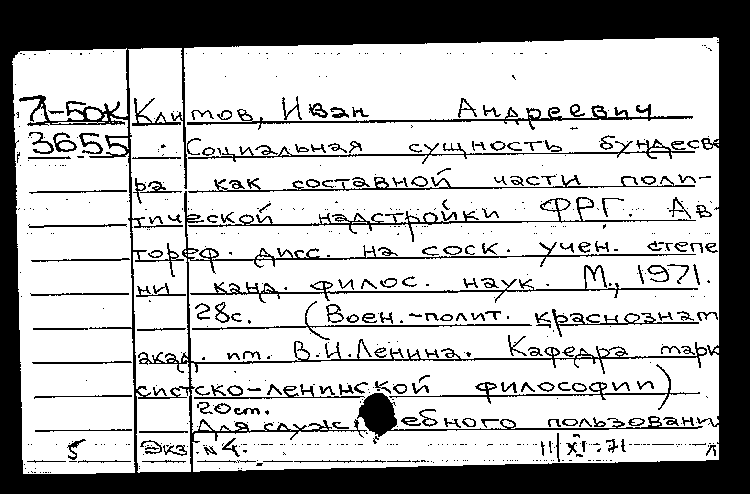 71-БОК Климов, Иван Андреевич
3655 Социальная сущность бундесве
ра как составной части поли-
тической надстройки ФРГ. Ав-
тореф. дисс. на соск. учен. степе
ни канд. филос. наук. М., 1971.
28с. (Воен.-полит. краснознам
акад. им. В.И.Ленина. Кафедра марк
систско-ленинской философии)
20 cm.
Для служебного пользования
5 Экз N 4. 11/XI-71